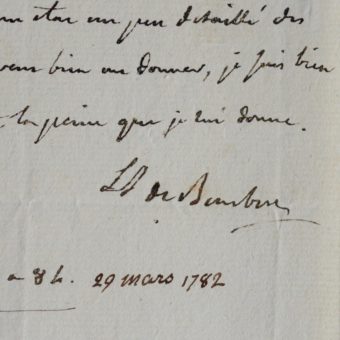 un état un peu détaillé des
veux bien me donner, je suis bien
la peine que je lui donne.
de Bourbon
29 mars 1782